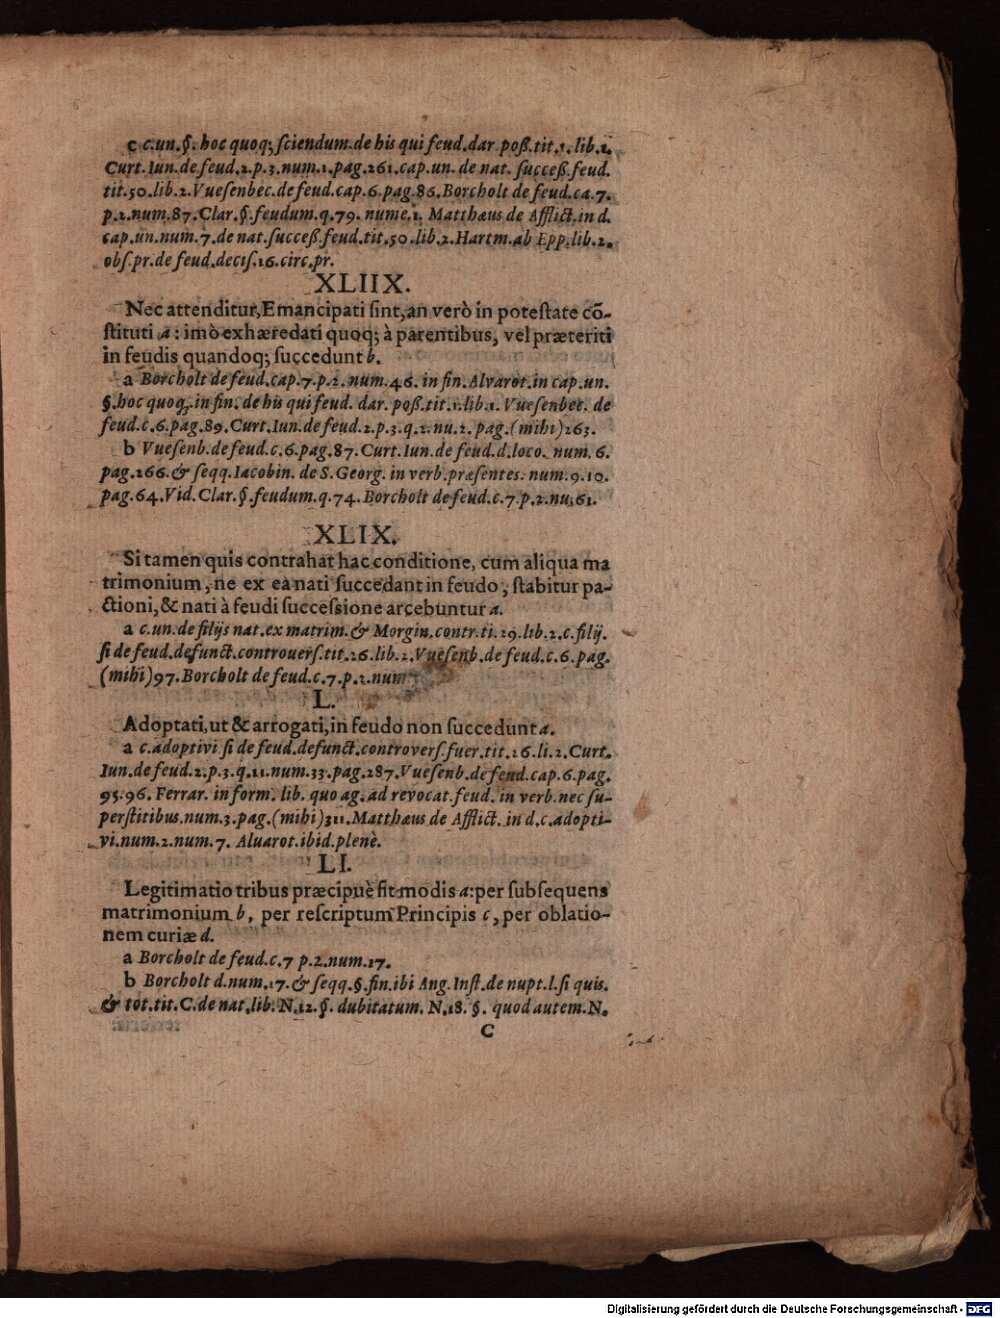 c c.un.§. hoc quoq; ſciendum.de his qui feud.dar.poß.tit.1.lib.1.
Curt.Iun.de feud.2.p.3.num.1.pag.261.cap.un. de nat. ſucceß.feud.
tit.50.lib.2.Vueſenbec.de feud.cap.6.pag.86.Borcholt de feud.ca.7.
p.2.num.87.Clar.§.feudum.q.79. nume.1. Matthæus de Afflict.in d.
cap.un.num.7.de nat.ſucceß.feud.tit.50.lib.2.Hartm.ab Epp.lib.2.
obſ.pr.de feud.deciſ.16.circ.pr.
XLIIX.
Nec attenditur,Emancipati ſint,an verò in poteſtate cõ-
ſtituti a: imò exhæredati quoq; à parentibus, vel præteriti
in feudis quandoq; ſuccedunt b.
a Borcholt de feud.cap.7.p.2. num.46. in fin. Alvarot.in cap.un.
§.hoc quoq.in fin. de his qui feud. dar. poß.tit.1.lib.1. Vueſenbec. de
feud.c.6.pag.89.Curt.Iun.de feud.2.p.3.q.2.nu.2. pag.(mihi)263.
b Vueſenb.de feud.c.6.pag.87.Curt.Iun.de feud.d.loco. num.6.
pag.266.& ſeqq.Iacobin. de S.Georg. in verb.præſentes. num.9.10.
pag.64.Vid.Clar.§.feudum.q.74.Borcholt de feud.c.7.p.2.nu.61.
XLIX.
Si tamen quis contrahat hac conditione, cum aliqua ma
trimonium, ne ex eâ nati ſuccedant in feudo, ſtabitur pa-
ctioni,& nati à feudi ſucceſsione arcebuntur a.
a c.un.de filijs nat.ex matrim.& Morgin.contr.ti.29.lib.2.c.filij.
ſi de feud.defunct.controuerſ.tit.26.lib.2.Vueſenb.de feud.c.6.pag.
(mihi)97.Borcholt de feud.c.7.p.2.num
L.
Adoptati,ut & arrogati,in feudo non ſuccedunt a.
a c.adoptivi ſi de feud.defunct.controverſ.fuer.tit.26.li.2.Curt.
Iun.de feud.2.p.3.q.11.num.33.pag.287.Vueſenb.de feud.cap.6.pag.
95.96. Ferrar. in form. lib. quo ag. ad revocat.feud. in verb.nec ſu-
perſtitibus.num.3.pag.(mihi)311.Matthæus de Afflict. in d.c.adopti-
vi.num.2.num.7. Aluarot.ibid.plenè.
LI.
Legitimatio tribus præcipuè fit modis a:per ſubſequens
matrimonium b, per reſcriptum Principis c, per oblatio-
nem curiæ d.
a Borcholt de feud.c.7 p.2.num.17.
b Borcholt d.num.17.& ſeqq.§.fin.ibi Ang.Inſt.de nupt.l.ſi quis.
& tot.tit.C.de nat.lib.N.12.§. dubitatum. N.18.§. quod autem.N.
C
Digitalisierung gefördert durch die Deutsche Forschungsgemeinschaft - DFG